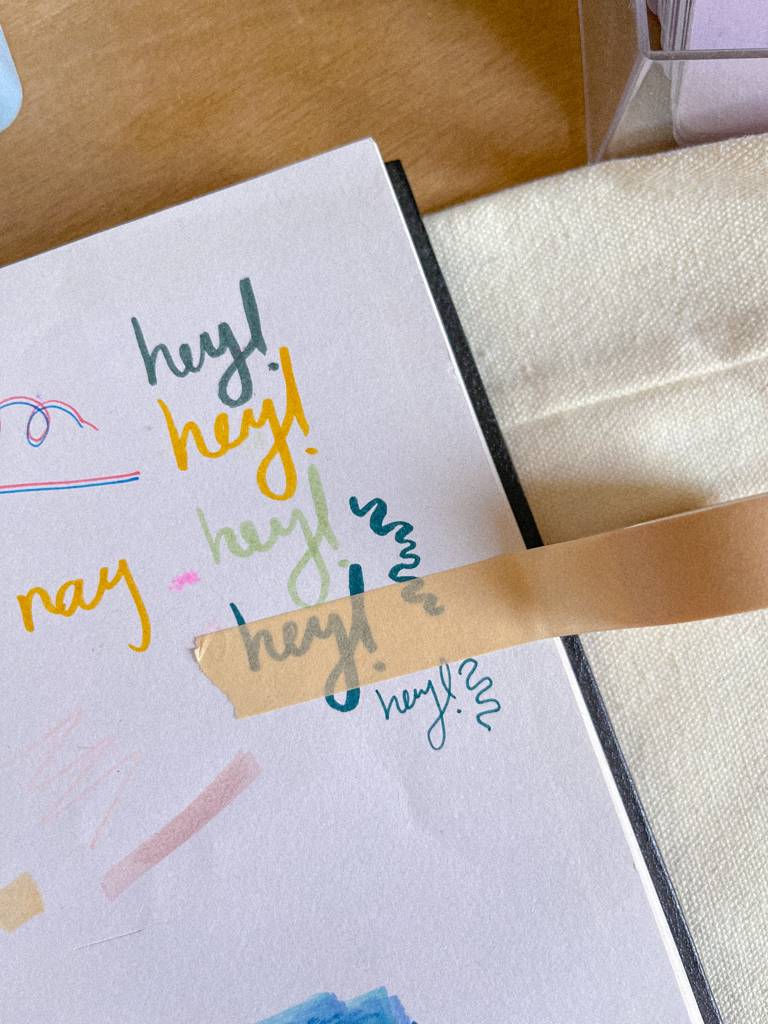 hey!
hey!
hey!
nay
hey!
hey!